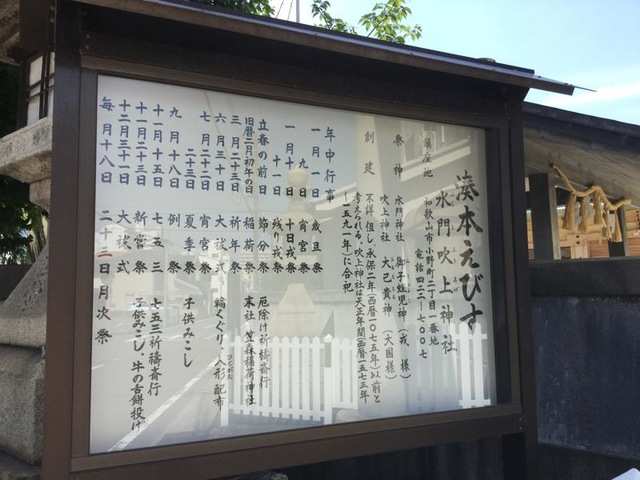 湊本えびす
水門吹上神社
鎮座地 和歌山市小野町二丁目一番地
祭神 水門神社 御子蛭児神(戎様)
吹上神社 大己貴神(大国様)
創建 不詳但し、永保二年(西暦一〇七五年)以前と
考えられる、吹上神社は天正年間(西暦一五七三年
~一五九一年に合祀
年中行事
一月一日 歳旦祭
九日 宵宮祭
一月十日 十日戎祭
十一日 残り戎祭
立春の前日 節分祭 厄除け祈祷斎行
旧暦二月初午の日 稲荷祭 末社 笠森稲荷神社
三月二十三日 祈年祭
六月三十日 大祓式 輪くぐり、人形配布
七月二十二日 宵宮祭
二十三日 夏季祭 子供みこし
九月十八日 例祭
十一月十五日 七五三祭 七五三祈祷斎行
十一月二十三日 新嘗祭 子供みこし、牛の舌餅投げ
十二月三十一日 大祓式
毎月十八日 二十三日月次祭